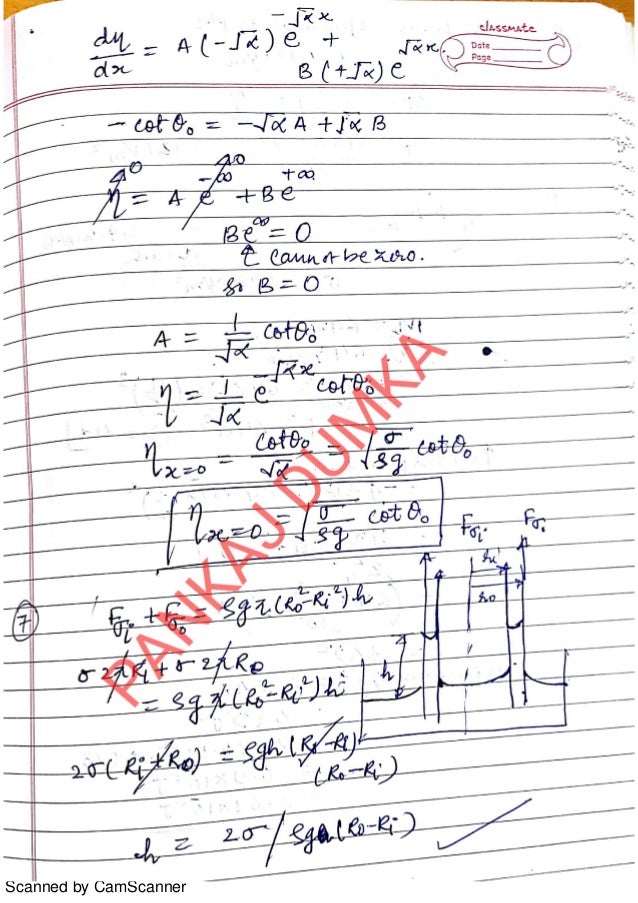 classmate
Date
Page
dη/dx = A(-√α) e^{-√α x} +
B(+√α) e^{√α x}
- cot θ₀ = -√α A + √α B
η = A e^{-∞} + B e^{+∞}
0 0
B e^∞ = 0
↑ cannot be zero.
so B = 0
A = 1/√α cot θ₀
η = 1/√α e^{-√α x} cot θ₀
η_{x=0} = cot θ₀/√α = √(σ/ρg) cot θ₀
η_{x=0} = √(σ/ρg) cot θ₀
PANKAJ DUMKA
⑦ F_{σi} + F_{σo} = ρgπ(Ro² - Ri²)h
F_{σi} F_{σo}
ri
ro
h
σ 2πRi + σ 2πRo
= ρgπ(Ro² - Ri²)h
2σ(Ri + Ro) = ρgh(Ro + Ri)
(Ro - Ri)
h = 2σ/ρg(Ro - Ri)
Scanned by CamScanner